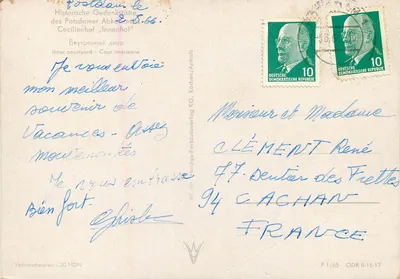 Potsdam le
2.8.66.
Historische Gedenkstätte
des Potsdamer Abkommens
Cecilienhof „Innenhof“
Внутренний двор
Inner courtyard · Cour intérieure
Je vous envoie
mon meilleur
souvenir de
Vacances - Assez
Je vous embrasse
Bien fort.
DEUTSCHE
DEMOKRATISCHE REPUBLIK
10
DEUTSCHE
DEMOKRATISCHE REPUBLIK
10
Monsieur et Madame
CLÉMENT René
77. Sentier des Frettes
94 CACHAN
FRANCE